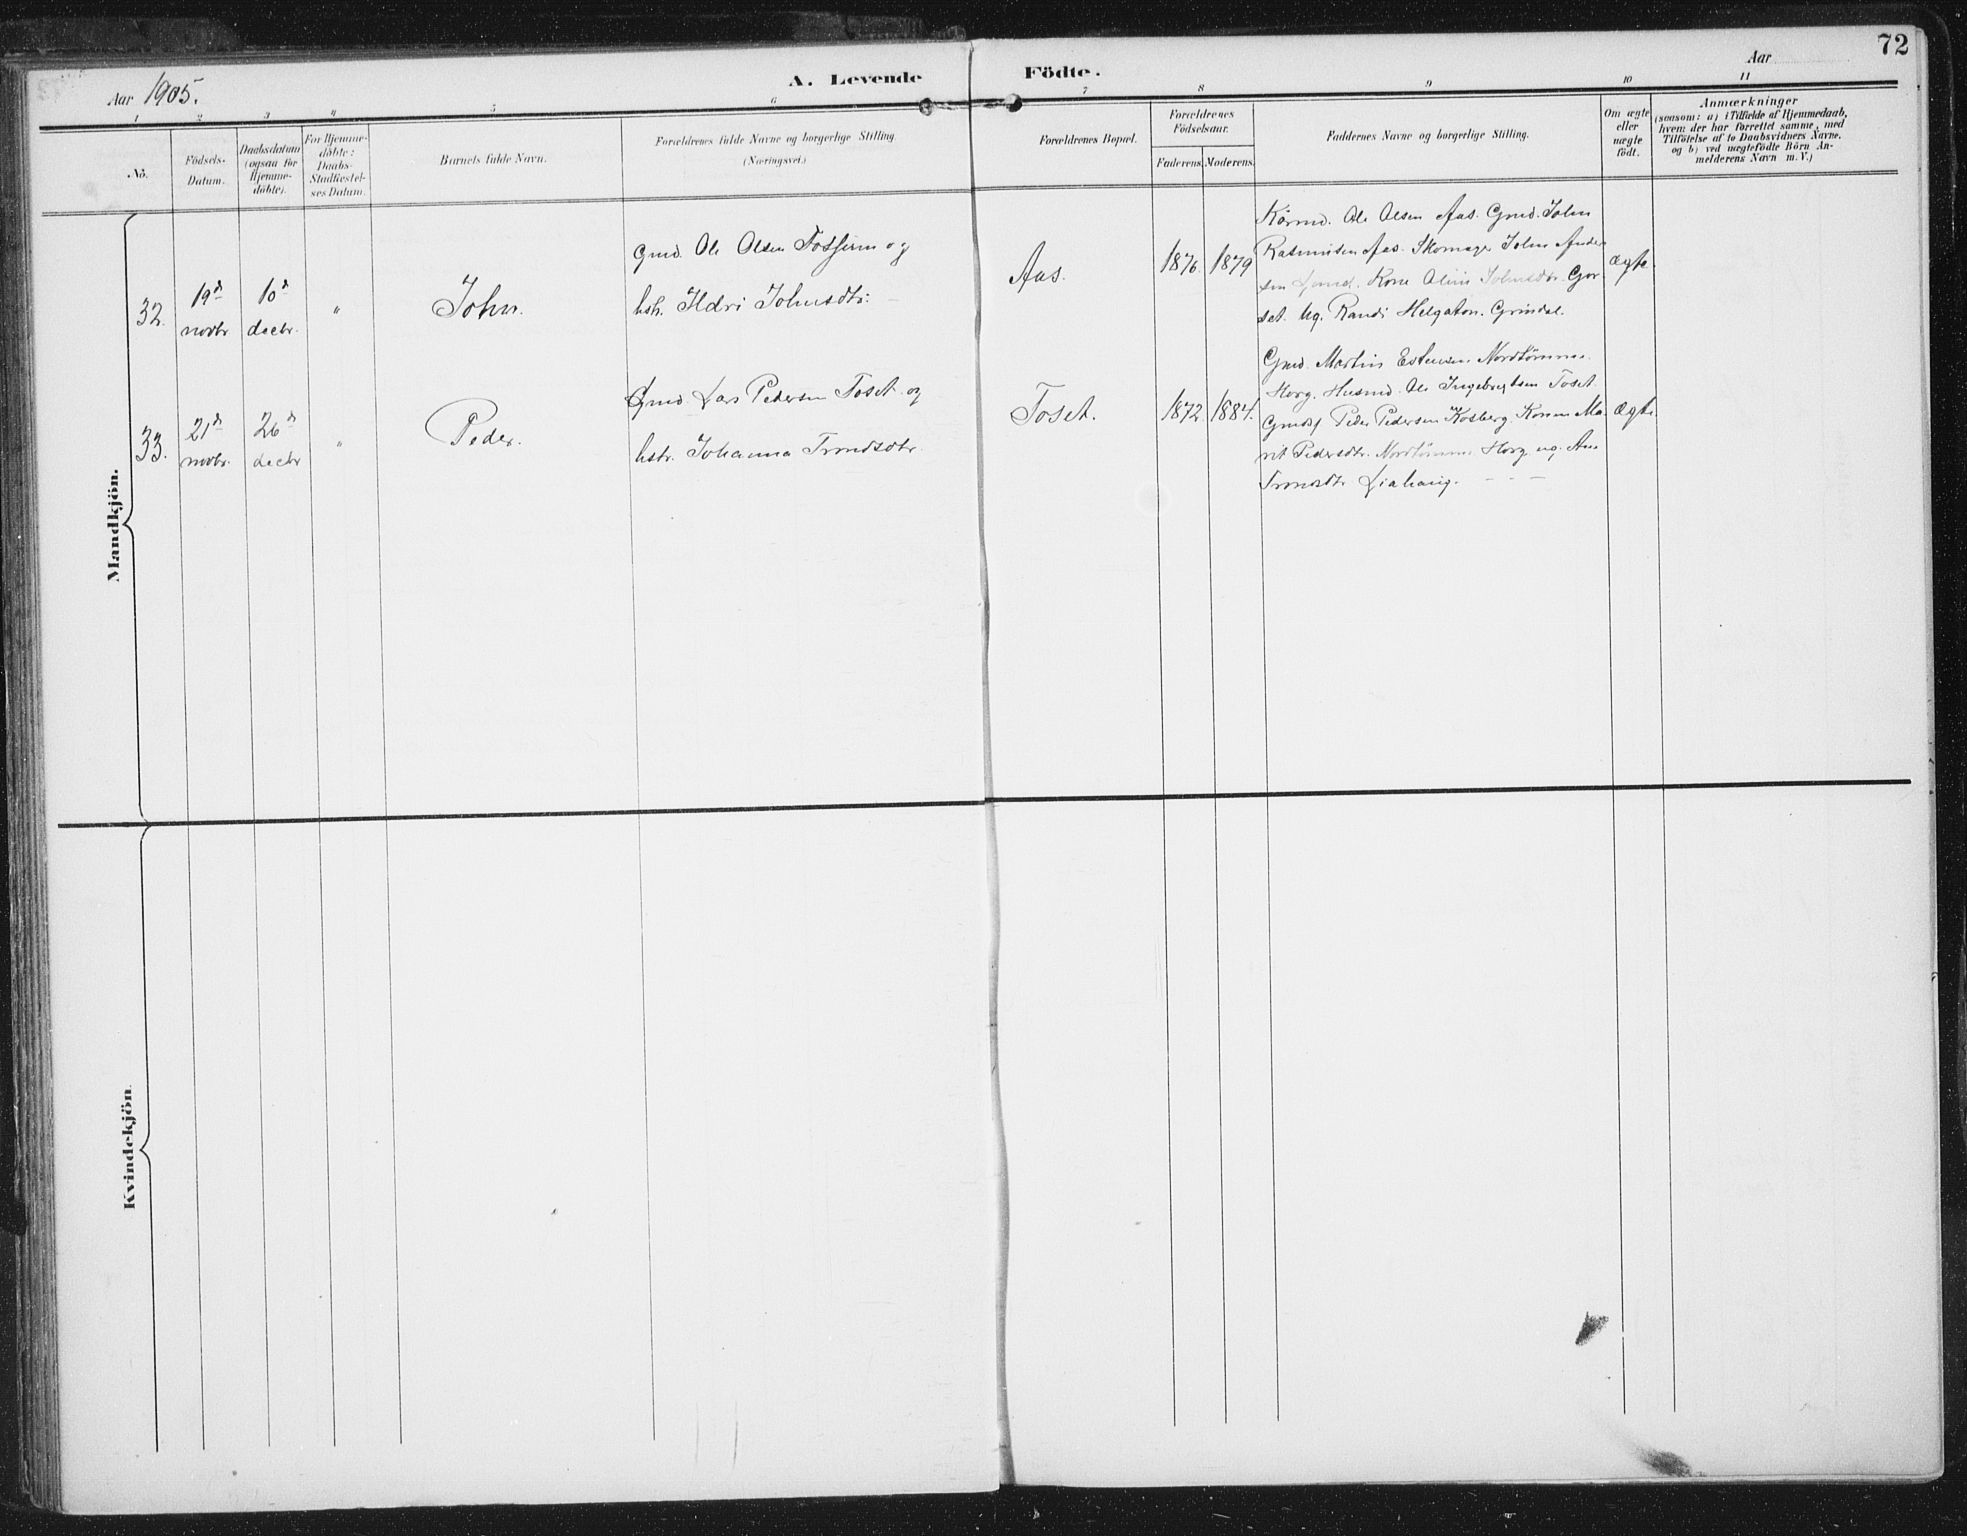 72
Aar 1905.
A. Levende Födte.
Aar
1 2 3 4 5 6 7 8 9 10 11
No.
Födsels-
Datum.
Daabsdatum
(ogsaa for
Hjemme-
döbte).
For Hjemme-
döbte:
Daabs-
Stadfæstel-
ses Datum.
Barnets fulde Navn.
Forældrenes fulde Navne og borgerlige Stilling
(Næringsvei.)
Forældrenes Bopæl.
Forældrenes
Födselsaar.
Faderens. Moderens.
Faddernes Navne og borgerlige Stilling.
Om ægte
eller
uægte
födt.
Anmærkninger
(saasom: a) i Tilfælde af Hjemmedaab,
hvem der har forrettet samme, med
Tilföielse af to Daabsvidners Navne,
og b) ved uægtefödte Börn An-
melderens Navn m. V.)
Mandkjön.
32.
19d
novbr
10d
decbr.
"
John.
Gmd. Ole Olsen Fossum og
hstr. Ildri Johnsdtr:
Aas.
1876. 1879
Kårmd. Ole Olsen Aas. Gmd. John
Rasmussen Aas. Skomager John Ander
sen Kone Johnsdtr. Gor
set. Ug. Randi Helgaton. Grindal.
ægte.
33.
21d
novbr.
26d
decbr
"
Peder.
Gmd. Lars Pedersen Toset og
hstr. Johanna Trondsdtr.
Toset.
1872. 1884.
Gmd. Martin Estensen Nordtømme
Horg. Husmd. Ole Ingebrigtsen Toset.
Gmds Peder Pedersen Kosberg. Konen Ma-
rit Pedersdtr. Nordtømme Horg. ug. Ane
Trondsdtr Liahaug. - - -
ægte.
Kvindekjön.